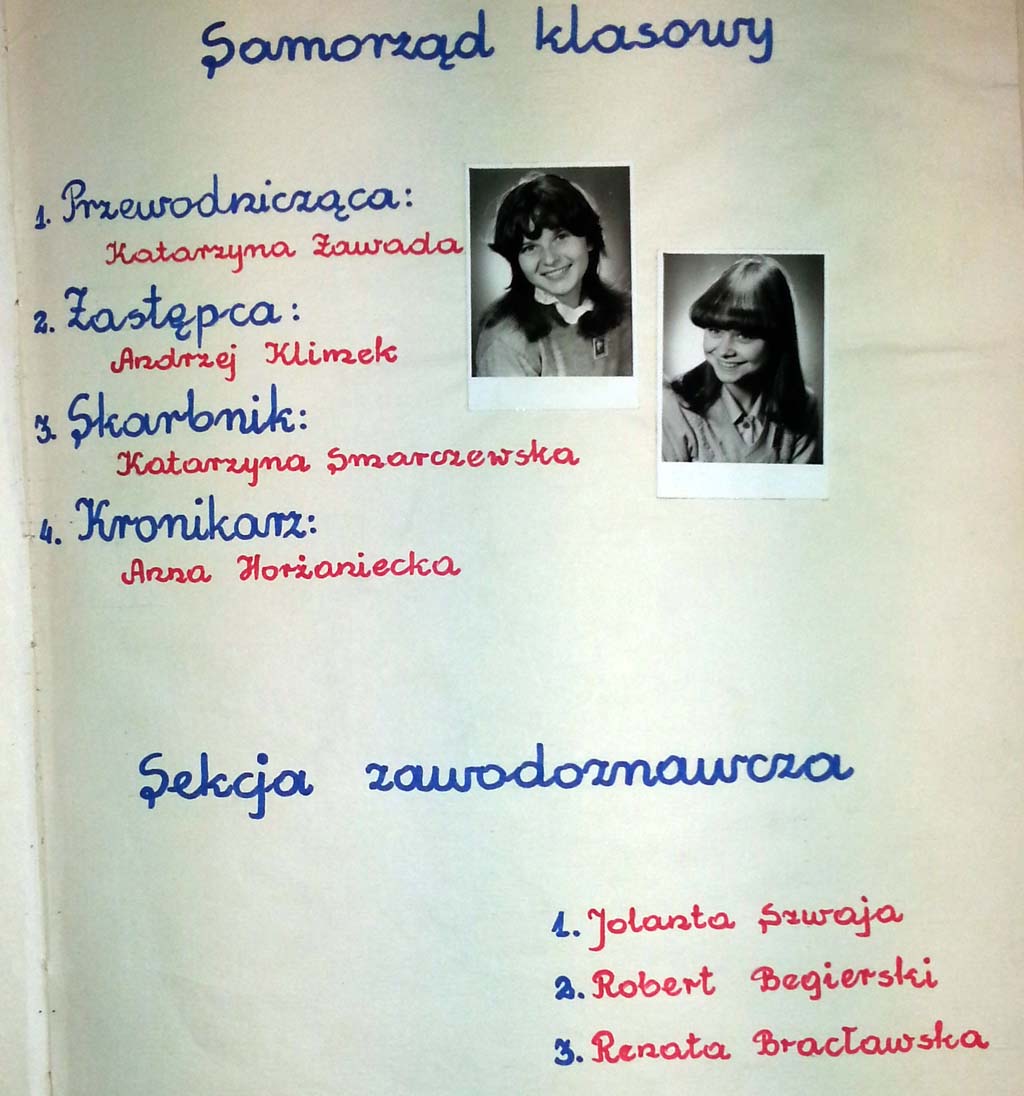 Samorząd klasowy
1. Przewodnicząca:
Katarzyna Zawada
2. Zastępca:
Andrzej Klimek
3. Skarbnik:
Katarzyna Smarczewska
4. Kronikarz:
Anna Horżaniecka
Sekcja zawodoznawcza
1. Jolanta Szwaja
2. Robert Begierski
3. Renata Bracławska